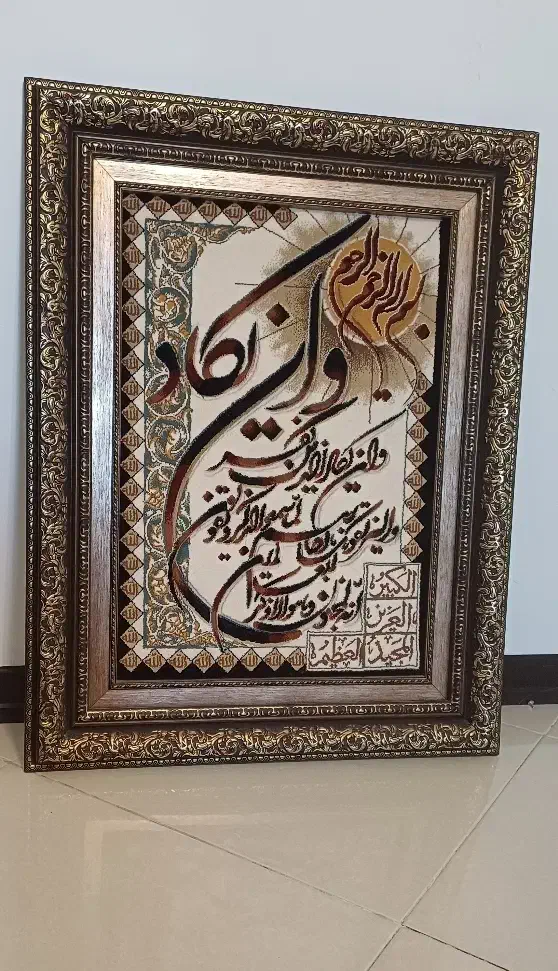 بسم الله الرحمن الرحیم
وان یکاد
وان یکاد الذین کفروا
لیزلقونک بابصارهم لما سمعوا الذکر و یقولون
انه لمجنون و ما هو الا ذکر للعالمین
الکبیر
العزیز
المجید العظیم
الله